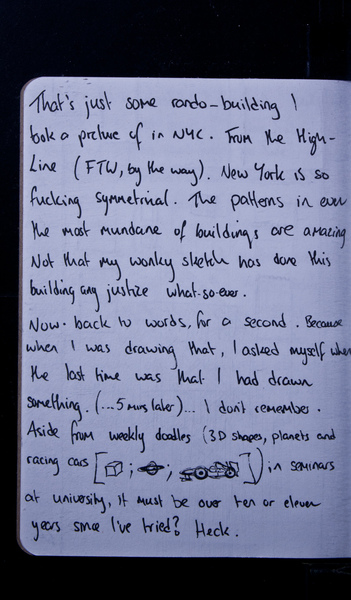 That's just some rando-building I
took a picture of in NYC. From the High-
Line (FTW, by the way). New York is so
fucking symmetrical. The patterns in even
the most mundane of buildings are amazing
Not that my wonky sketch has done this
building any justice what-so-ever.
Now. back to words, for a second. Because
when I was drawing that, I asked myself when
the last time was that I had drawn
something. (...5 mins later)... I don't remember.
Aside from weekly doodles (3D shapes, planets and
racing cars [ ; ; ]) in seminars
at university, it must be over ten or eleven
years since I've tried? Heck.